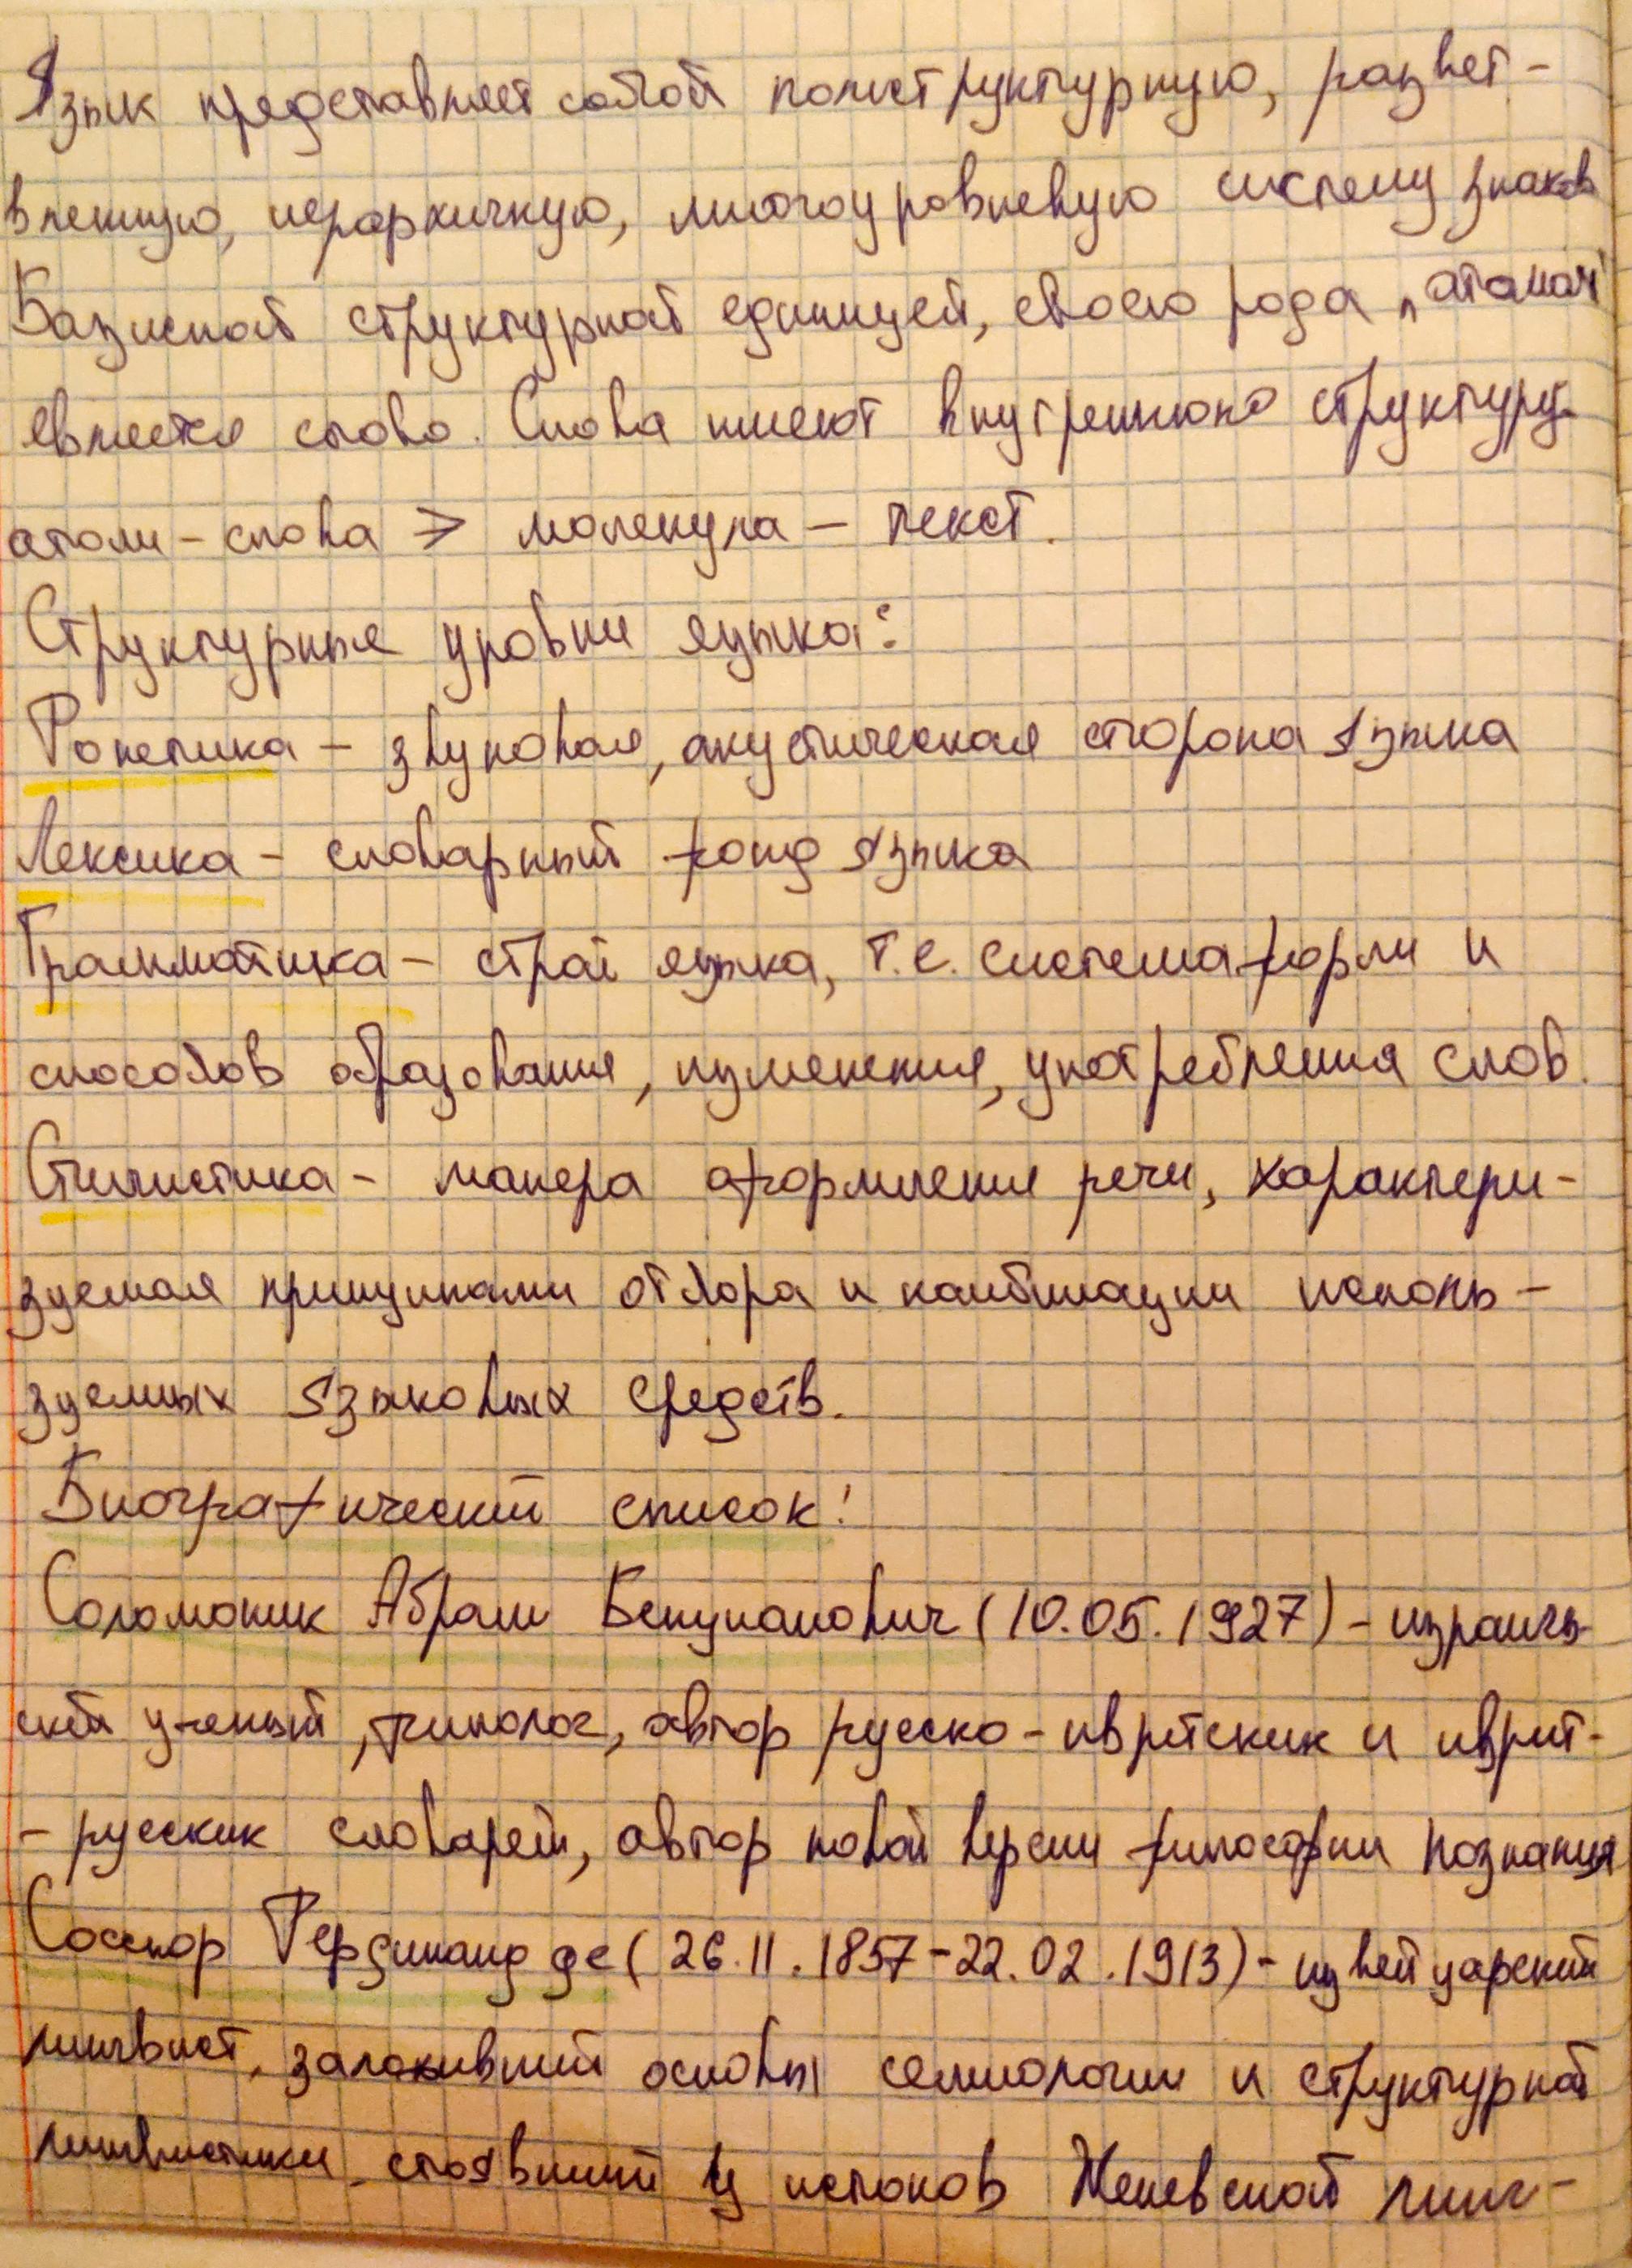 Язык представляет собой полиструктурную, развет-
вленную, иерархичную, многоуровневую систему знаков
Базисной структурной единицей, своего рода „атомом"
является слово. Слова имеют внутреннюю структуру.
атомы - слова > молекула - текст.
Структурные уровни языка:
Фонетика - звуковая, акустическая сторона языка
Лексика - словарный фонд языка
Грамматика - строй языка, т.е. система форм и
способов образования, изменения, употребления слов.
Стилистика - манера оформления речи, характери-
зуемая принципами отбора и комбинации исполь-
зуемых языковых средств.
Биографический список:
Соломоник Абрам Бенцианович (10.05.1927) - израиль-
ский ученый, филолог, автор русско-ивритских и иврит-
- русских словарей, автор новой версии философии познания
Соссюр Фердинанд де (26.11.1857-22.02.1913) - швейцарский
лингвист, заложивший основы семиологии и структурной
лингвистики, стоявший у истоков Женевской линг-